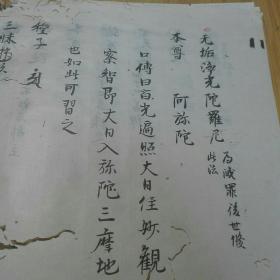 无垢淨光陀羅尼 此法 為滅罪後世修
本尊 阿弥陀
口傳曰百光遍照大日住妙觀
察智即大日入弥陀三摩地
也如此可習之
種子
三昧